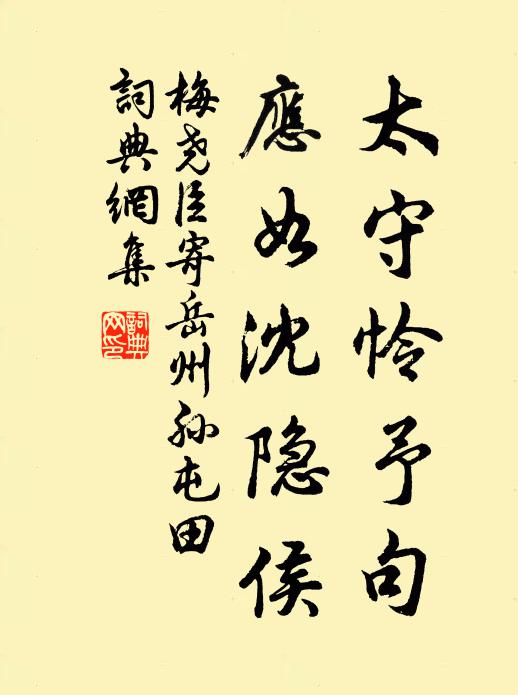 太守怜予句
應如沈隐侯
梅尧臣寄岳州孙屯田
詞典網集
詞典
网印